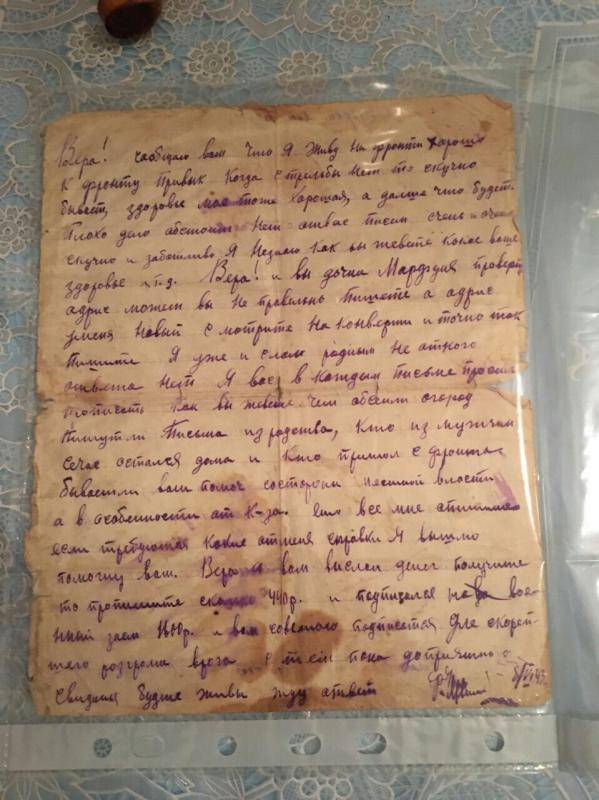 Вера! саобщаю вам что я живу на фронти хорошо
к фронту привык когда стрельбы нет то скучно
бывает, здоровье мое тоже хорошая, а дальше что будет.
Плохо дело абстоит нет отвас писем очень и очень
скучно и заботливо, я незнаю как вы жевете какое ваше
здоровье и т.д. Вера! и вы дочка проверте
адрис можеть вы не правельно пишете а адрис
уменя новый смотрите на конверти и точно так
пишите я уже и слал родным не откого
ответа нет я вас в каждым письме просил
прописать как вы жевете чем обсеили огород
пишутли письма из родства, кто из мужчин
сечас остался дома и кто пришол с фронта
бываетли вам помоч состороны местной власти
а в особенности от к-за. все мне
если требуются какие отменя справки я вышлю
помогну вам. Вера я вам выслал денег получите
то пропишите сколько 440р. и подписался на вое-
нный заем р. и вам советою подписатся для скорей-
шего розгрома врага, с тем пока до приятного
свидания будте живы жду ответ 8/VI 43